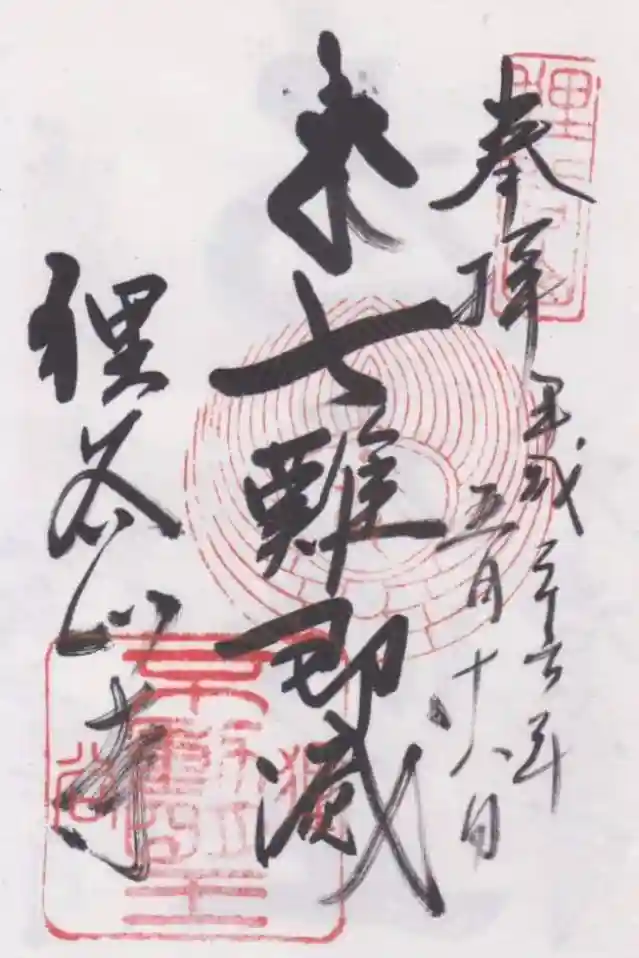 奉拝
平成二十六年
五月十八日
七難即滅
狸谷山寺